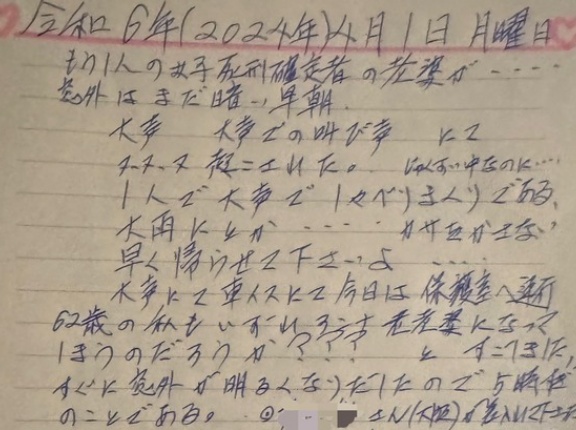 令和6年(2024年)4月1日 月曜日
もう1人の女子死刑確定者の老婆が‥‥
窓外はまだ暗い、早朝、
大声 大声での叫び声 にて
ヌーヌーヌ 起こされた。 じゅくすい中なのに‥‥
1人で大声で1ゃべりまくりである、
大雨にとか ‥‥ カサをかさない
早く帰らせて下さいよ ‥‥
大声にて車イスにて今日は保護室へ連行
62歳の私もいずれ 老老婆になって
しまうのだろうか??? と すごすました、
すぐに窓外が明るくなりだしたので5時半
のことである。 さん(大阪)が差入れして下さった